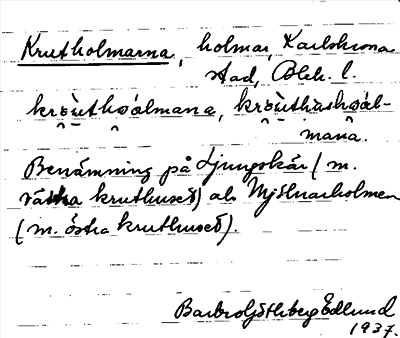 Krutholmarna, holmar, Karlskrona
stad, Blek. l.
krɷ̀uthɷálmana, krɷ̀uthɷshɷál-
mana.
Benämning på Ljungskär (m.
västra kruthuset) och Mjölnarholmen
(m. östra kruthuset).
Barbro Götlberg Edlund
1937.